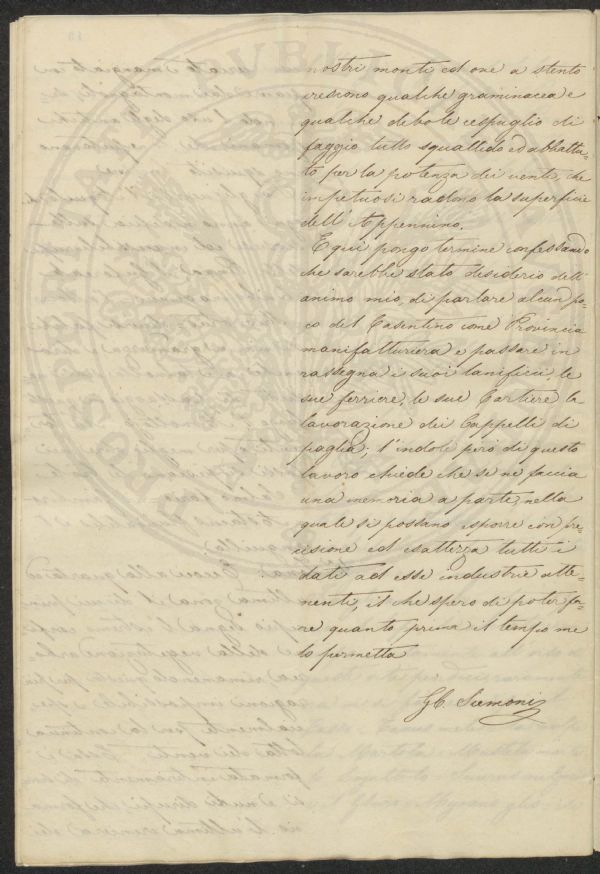 nostri monti ed ove a stento
crescono qualche graminacea e
qualche debole cespuglio di
faggio tutto squallido ed abbattu-
to per la potenza dei venti, che
impetuosi radono la superficie
dell'Appennino.
E qui pongo termine confessando
che sarebbe stato desiderio dell'
animo mio, di parlare alcun po-
co del Casentino come Provincia
manifatturiera e passare in
rassegna i suoi lanifici, le
sue ferriere, le sue Cartiere la
lavorazione dei Cappelli di
paglia; l'indole però di questo
lavoro chiede che se ne faccia
una memoria a parte, nella
quale si possano esporre con pre-
cisione ed esattezza tutti i
dati ad esse industrie atte-
nenti, il che spero di poter fa-
re quanto prima il tempo me
lo permetta
GC. Siemoni